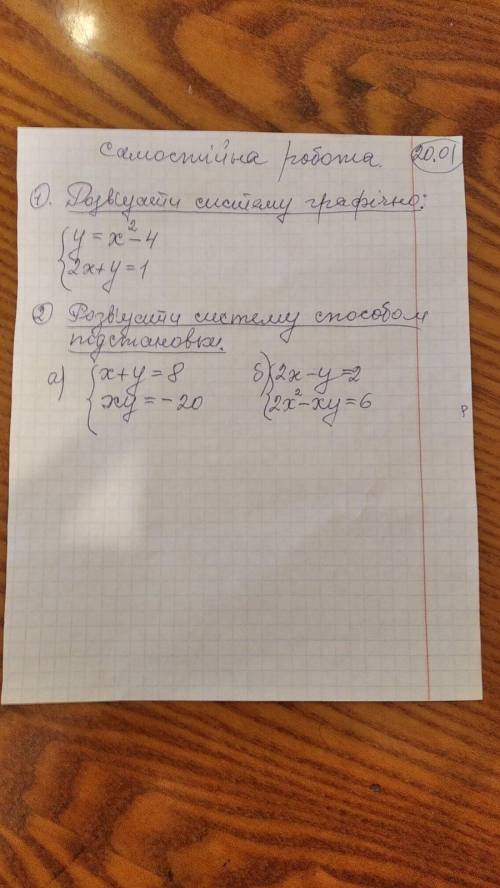 Самостійна робота. 20.01
1. Розв'язати систему графічно:
y = x² - 4
2x+y=1
2 Розв'язати систему способом
підстановки.
а) x+y=8 б) 2x-y=2
xy=-20 2x²-xy=6